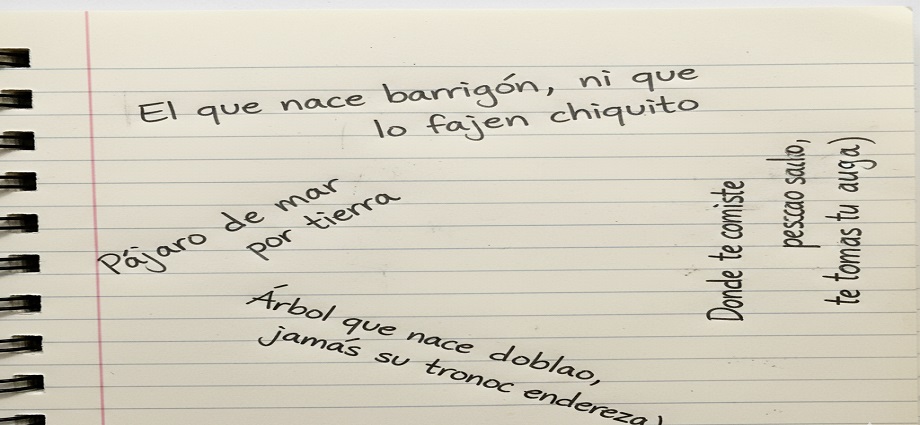 El que nace barrigón, ni que
lo fajen chiquito
Pájaro de mar
por tierra
Árbol que nace doblao,
jamás su tronoc endereza)
Donde te comiste
pesccao salio,
te tomas tu auga)